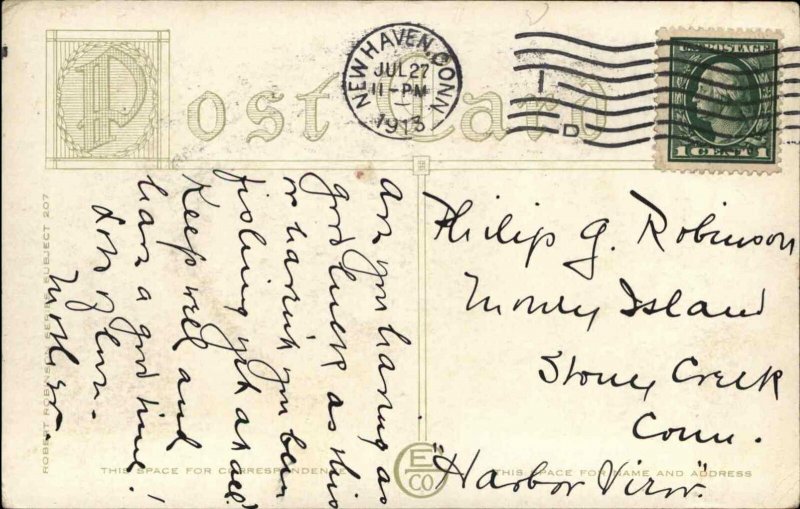 Post Card
NEW HAVEN, CONN.
JUL 27
11-PM
1913
1
D
U.S. POSTAGE
1 CENT 1
ROBERT ROBINSON SERIES SUBJECT 207
Are you having as
good luck as this
or haven't you been
fishing yet at all?
Keep well and
have a good time!
Lots of love.
Mother.
Philip G. Robinson
Money Island
Stony Creek
Conn.
"Harbor View".
THIS SPACE FOR CORRESPONDENCE
E
CO
THIS SPACE FOR NAME AND ADDRESS